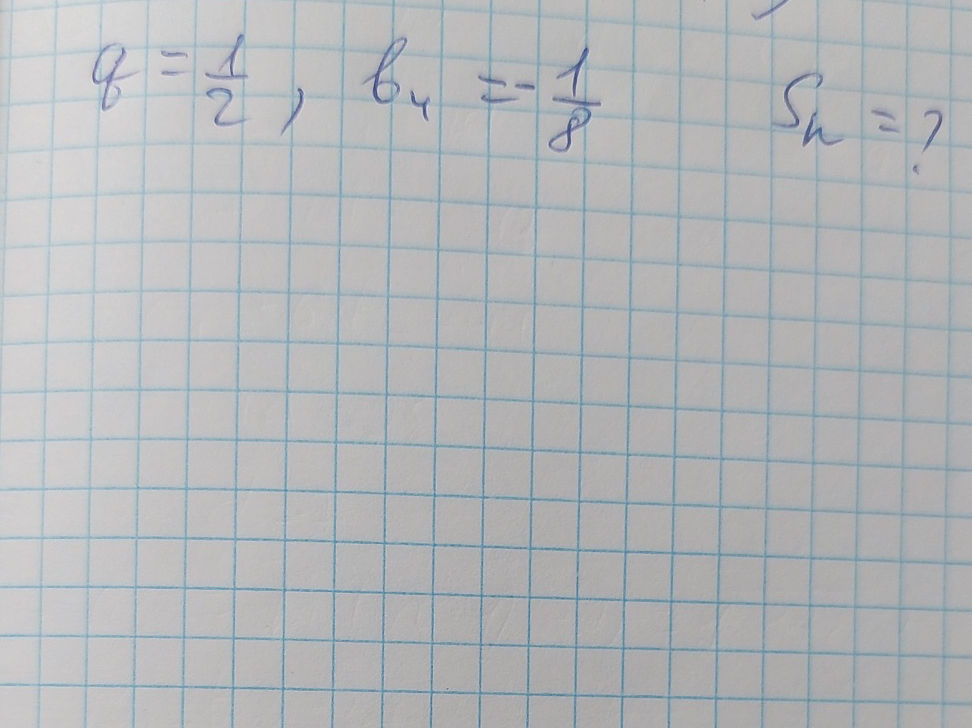 q = 1/2, b₄ = -1/8 Sₙ = ?